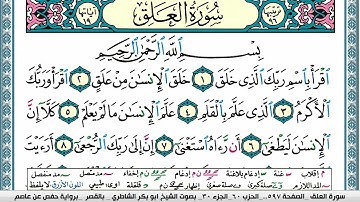 سُورَةُ العَلَقِ
بِسْمِ ٱللَّهِ ٱلرَّحْمَٰنِ ٱلرَّحِيمِ
ٱقْرَأْ بِٱسْمِ رَبِّكَ ٱلَّذِى خَلَقَ ١ خَلَقَ ٱلْإِنسَٰنَ مِنْ عَلَقٍ ٢ ٱقْرَأْ وَرَبُّكَ
ٱلْأَكْرَمُ ٣ ٱلَّذِى عَلَّمَ بِٱلْقَلَمِ ٤ عَلَّمَ ٱلْإِنسَٰنَ مَا لَمْ يَعْلَمْ ٥ كَلَّآ إِنَّ
ٱلْإِنسَٰنَ لَيَطْغَىٰٓ ٦ أَن رَّءَاهُ ٱسْتَغْنَىٰٓ ٧ إِنَّ إِلَىٰ رَبِّكَ ٱلرُّجْعَىٰٓ ٨ أَرَءَيْتَ
سورة العلق - الصفحة ٥٩٧ - الحزب ٦٠ - الجزء ٣٠ - بصوت الشيخ أبو بكر الشاطري - بالقصر - برواية حفص عن عاصم